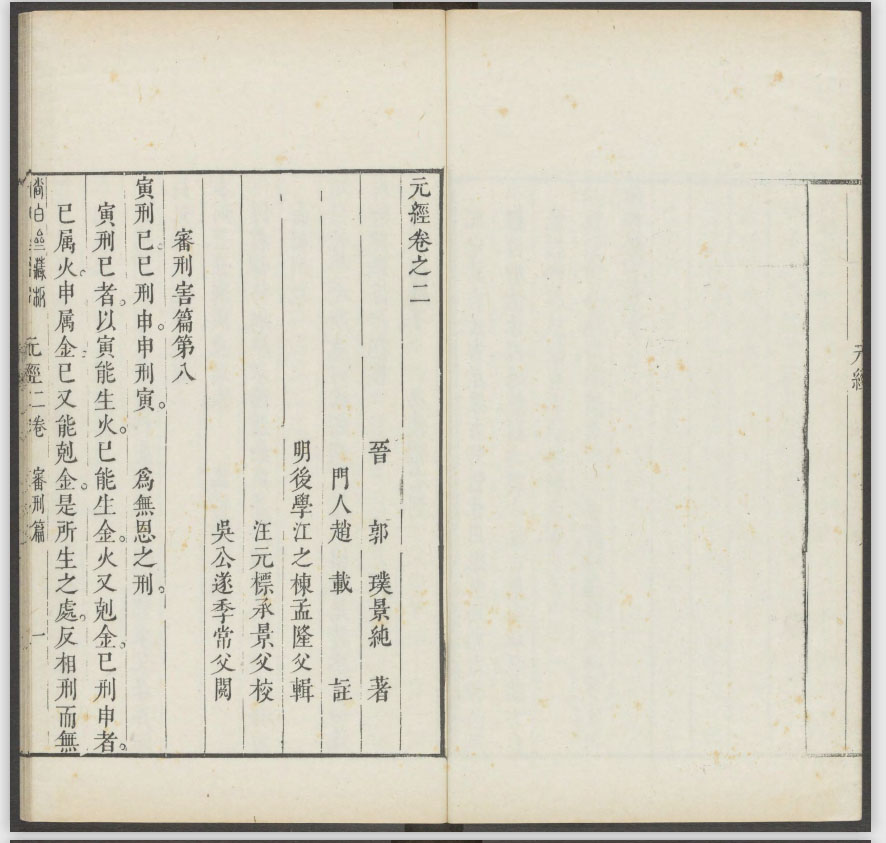 元經
元經卷之二
晉 郭 璞景純 著
門人趙 載 註
明後學江之棟孟隆父輯
汪元標承景父校
吳公遂季常父閱
審刑害篇第八
寅刑巳巳刑申。申刑寅。 爲無恩之刑。
寅刑巳者。以寅能生火。巳能生金。火又剋金。巳刑申者。
巳属火。申属金。巳又能剋金。是所生之處。反相刑而無
尚白齋藏板 元經二卷 審刑篇 一